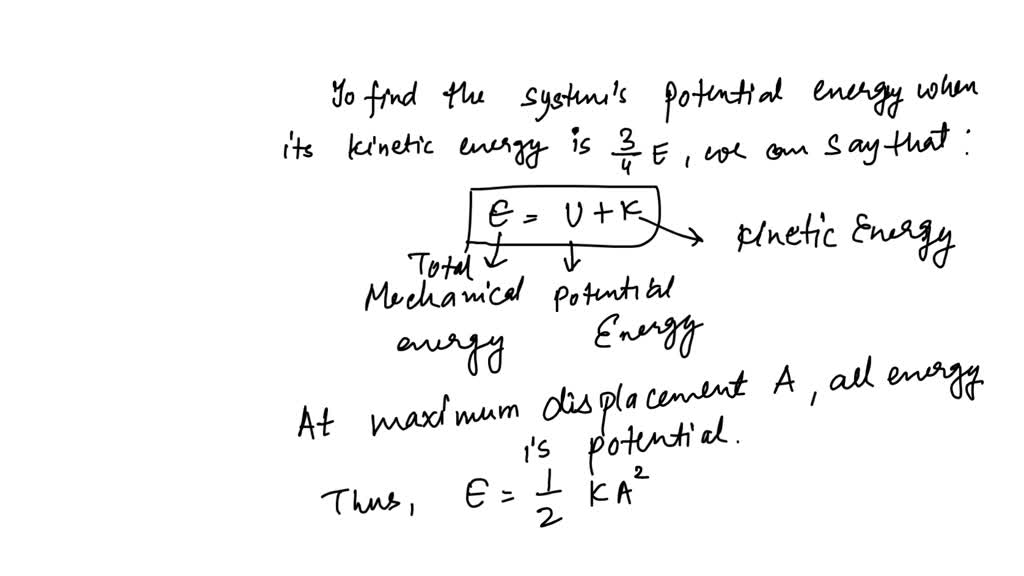 To find the system's potential energy when
its kinetic energy is 3/4 E, we can say that :
E = U + K
Kinetic Energy
Total
Mechanical
energy
Potential
Energy
At maximum displacement A, all energy
is potential.
Thus, E = 1/2 KA²